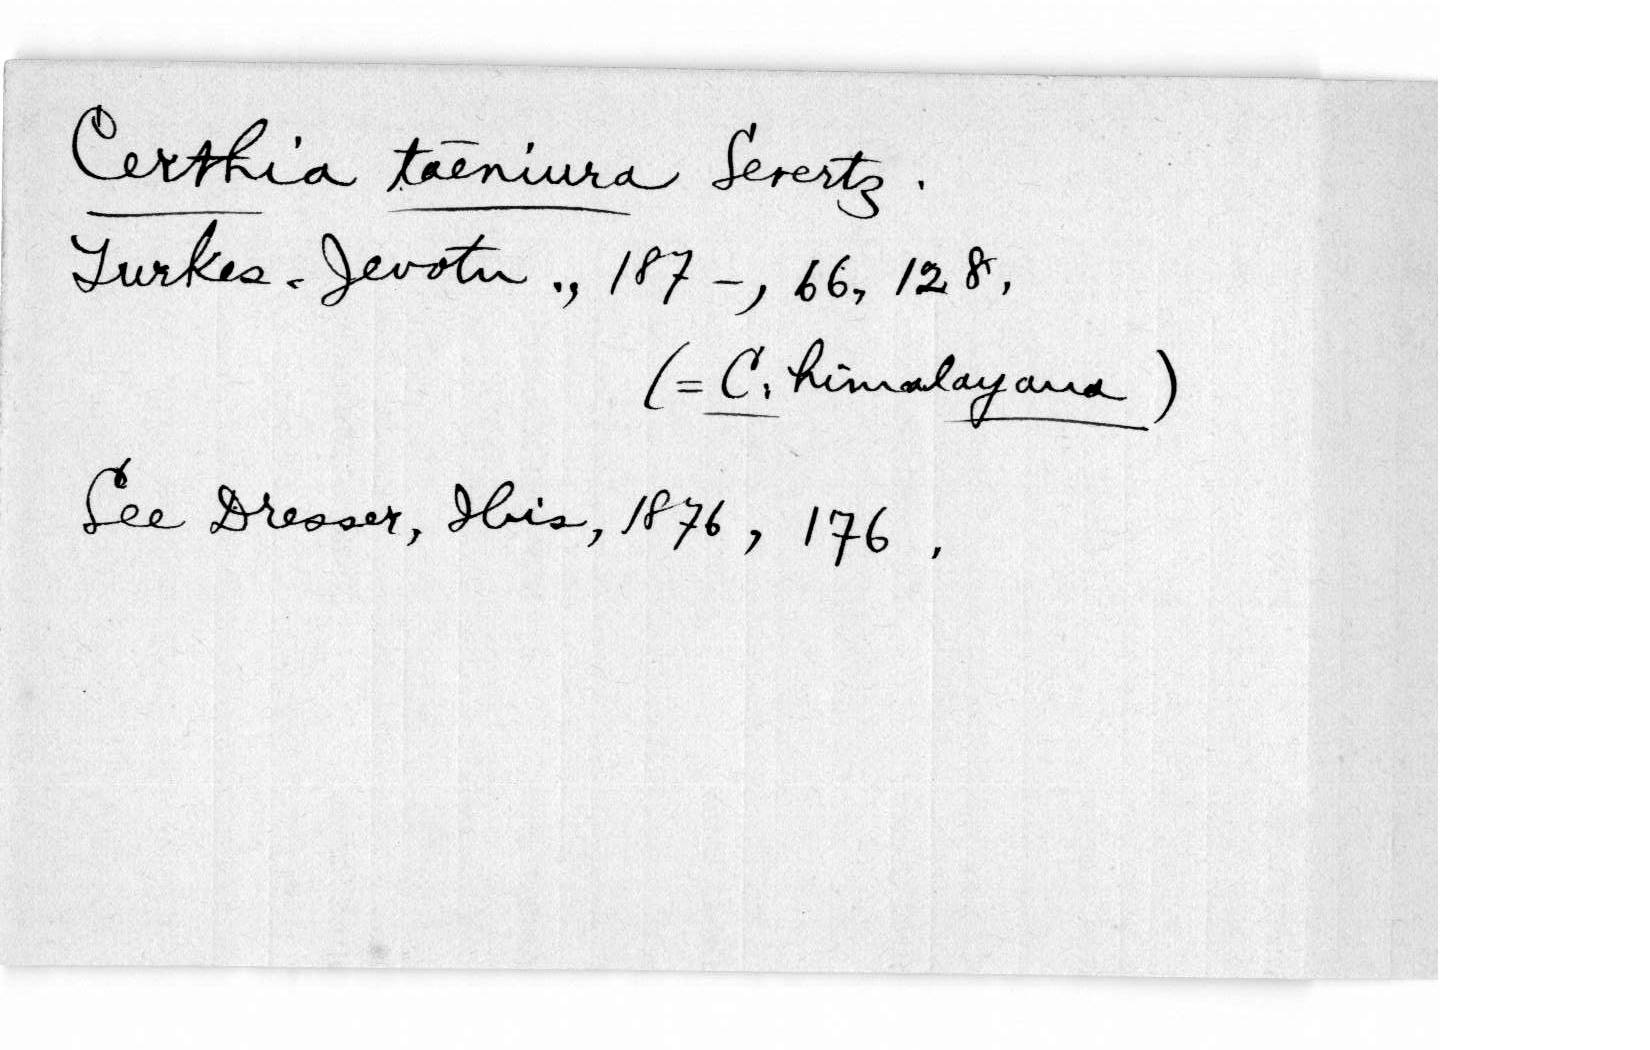 Certhia taēniura Severtz.
Turkes. Jevotn., 187-, 66, 128,
(= C. himalayana)
See Dresser, Ibis, 1876, 176.